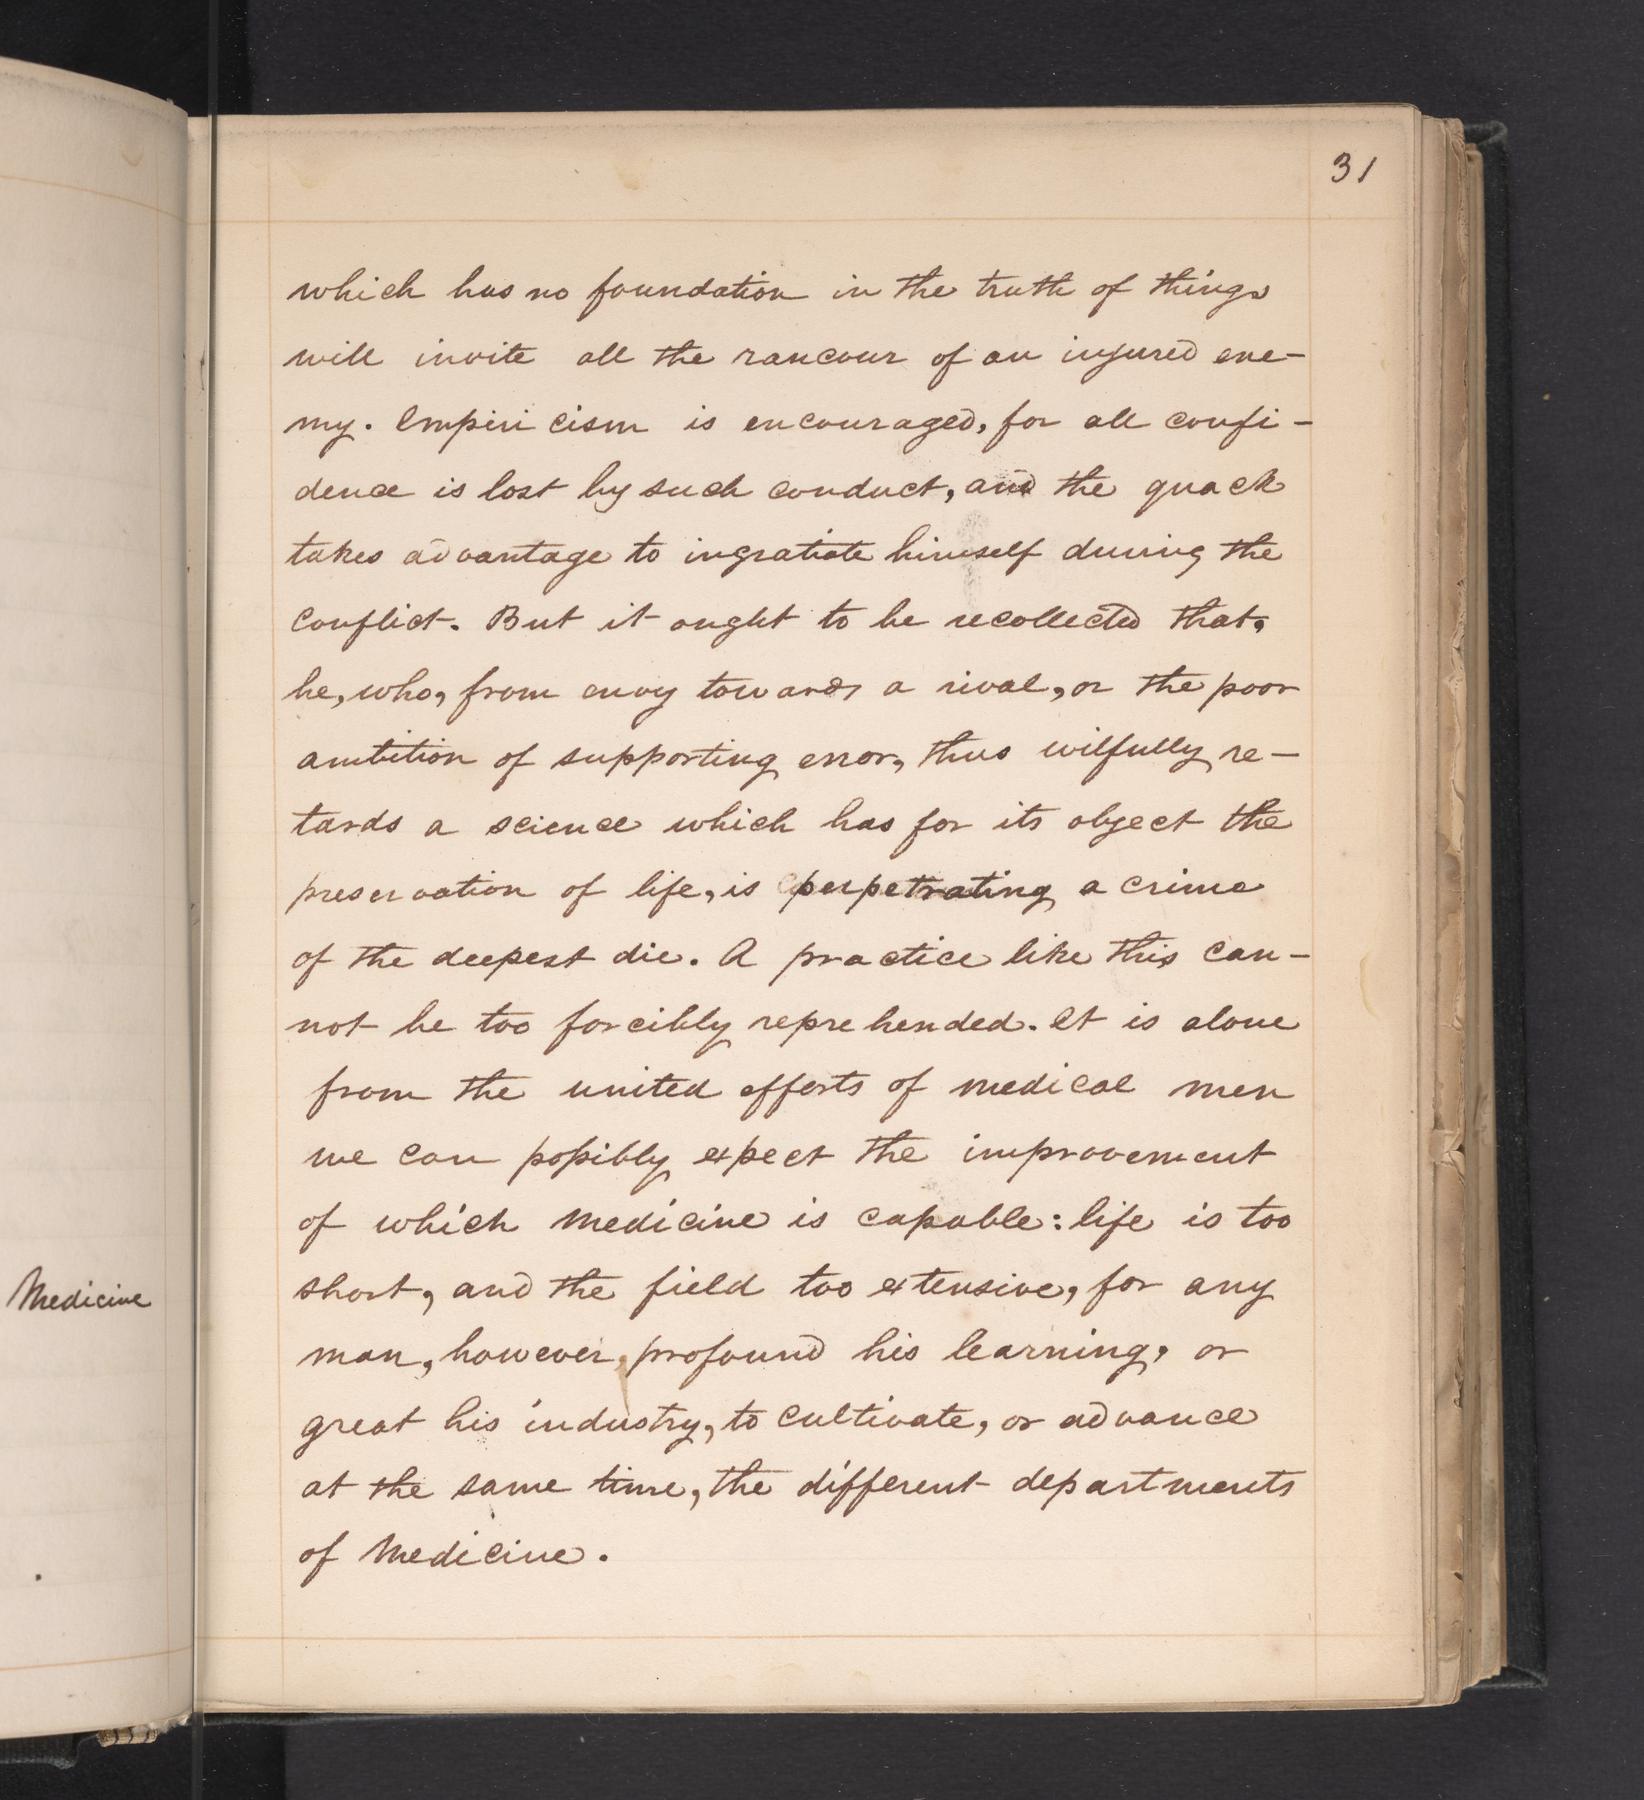 31
which has no foundation in the truth of things
will invite all the rancour of an injured ene-
my. Empiricism is encouraged, for all confi-
dence is lost by such conduct, and the quack
takes advantage to ingratiate himself during the
conflict. But it ought to be recollected that,
he, who, from envy towards a rival, or the poor
ambition of supporting error, thus wilfully re-
tards a science which has for its object the
preservation of life, is perpetrating a crime
of the deepest die. A practice like this can-
not be too forcibly reprehended. It is alone
from the united efforts of medical men
we can possibly expect the improvement
of which Medicine is capable: life is too
short, and the field too extensive, for any
man, however, profound his learning, or
great his industry, to cultivate, or advance
at the same time, the different departments
of Medicine.
Medicine